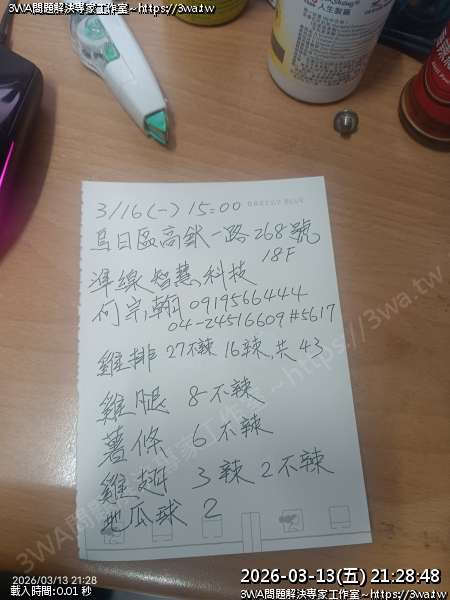 3WA問題解決專家工作室~https://3wa.tw
3WA問題解決專家工作室~https://3wa.tw
人生製藥
3/16(一) 15:00
烏日區高鉄一路268號
18F
準線智慧科技
何宗翰 0919566444
04-24516609#5617
雞排 27不辣 16辣,共43
雞腿 8不辣
薯條 6不辣
雞翅 3辣 2不辣
地瓜球 2
3WA問題解決專家工作室~https://3wa.tw
2026/03/13 21:28
載入時間:0.01 秒
2026-03-13(五) 21:28:48
3WA問題解決專家工作室~https://3wa.tw